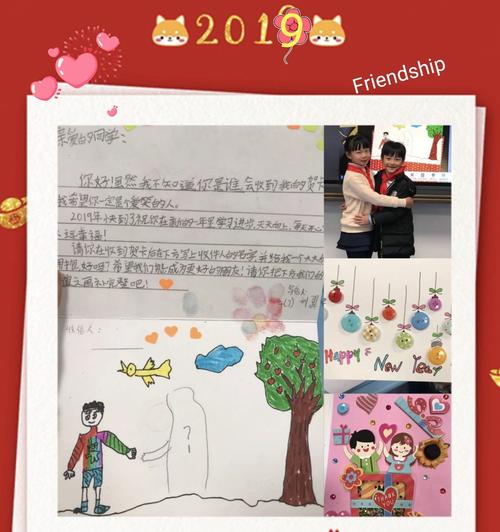 2019
Friendship
亲爱的同学:
你好!虽然我不知道你是谁会收到我的贺
我希望你一定是个爱笑的人。
2019年快到了祝你在新的一年里学习进步,天天向上,每天开心
远幸福!
请你在收到贺卡后在下方写上收件人的名字,并给我一个大大
好吗?希望我们能成为更好的朋友!请你把下方我们的
画补充完整吧!
(7) 刘
收信人:
?
Happy New Year
THANK YOU